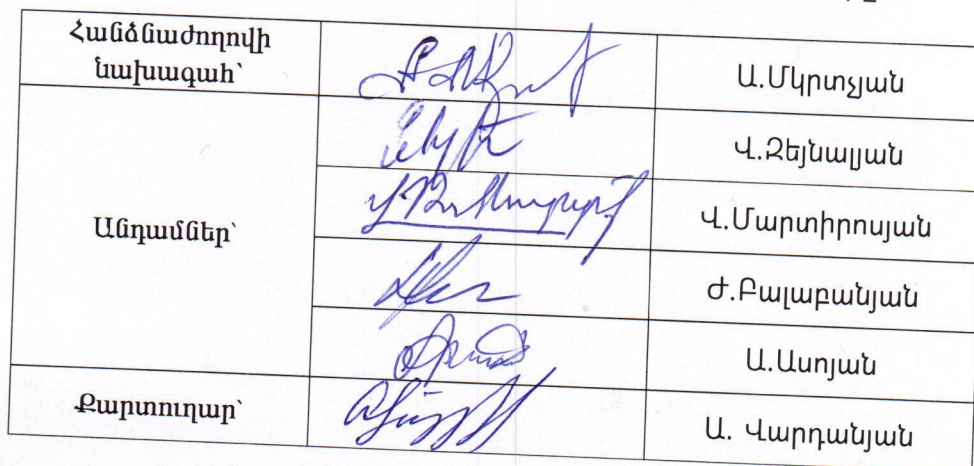 Հանձնաժողովի
նախագահ՝
Ա.Մկրտչյան
Վ.Զեյնալյան
Անդամներ՝
Վ.Մարտիրոսյան
Ժ.Բալաբանյան
Ա.Ասոյան
Քարտուղար՝
Ա. Վարդանյան